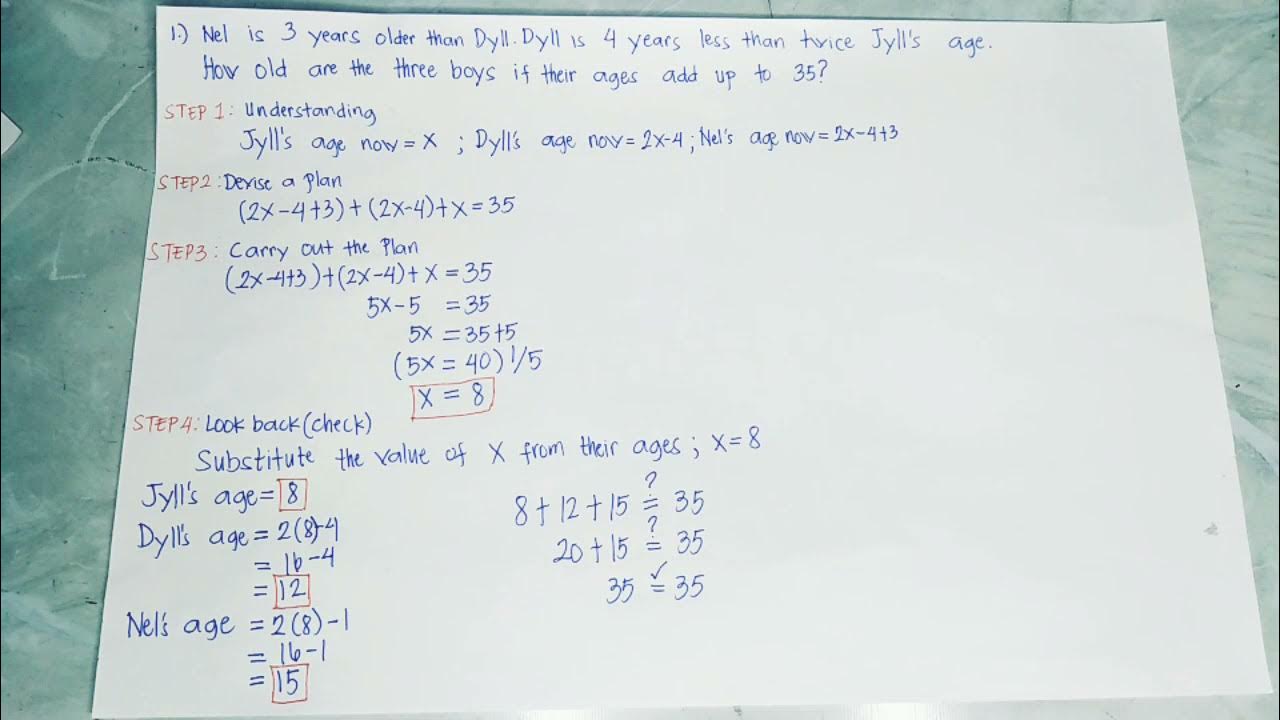 1.) Nel is 3 years older than Dyll. Dyll is 4 years less than twice Jyll's age.
How old are the three boys if their ages add up to 35?
STEP 1: Understanding
Jyll's age now = x ; Dyll's age now = 2x-4 ; Nel's age now = 2x-4+3
STEP2: Devise a Plan
(2x-4+3)+(2x-4)+x=35
STEP3: Carry out the Plan
(2x-4+3)+(2x-4)+x=35
5x-5 =35
5x =35+5
(5x = 40) 1/5
x = 8
STEP4: Look back (check)
Substitute the value of x from their ages ; x=8
Jyll's age= 8
Dyll's age = 2(8)-4
= 16-4
= 12
Nel's age = 2(8)-1
= 16-1
= 15
?
8+12+15 = 35
?
20+15 = 35
✓
35 = 35